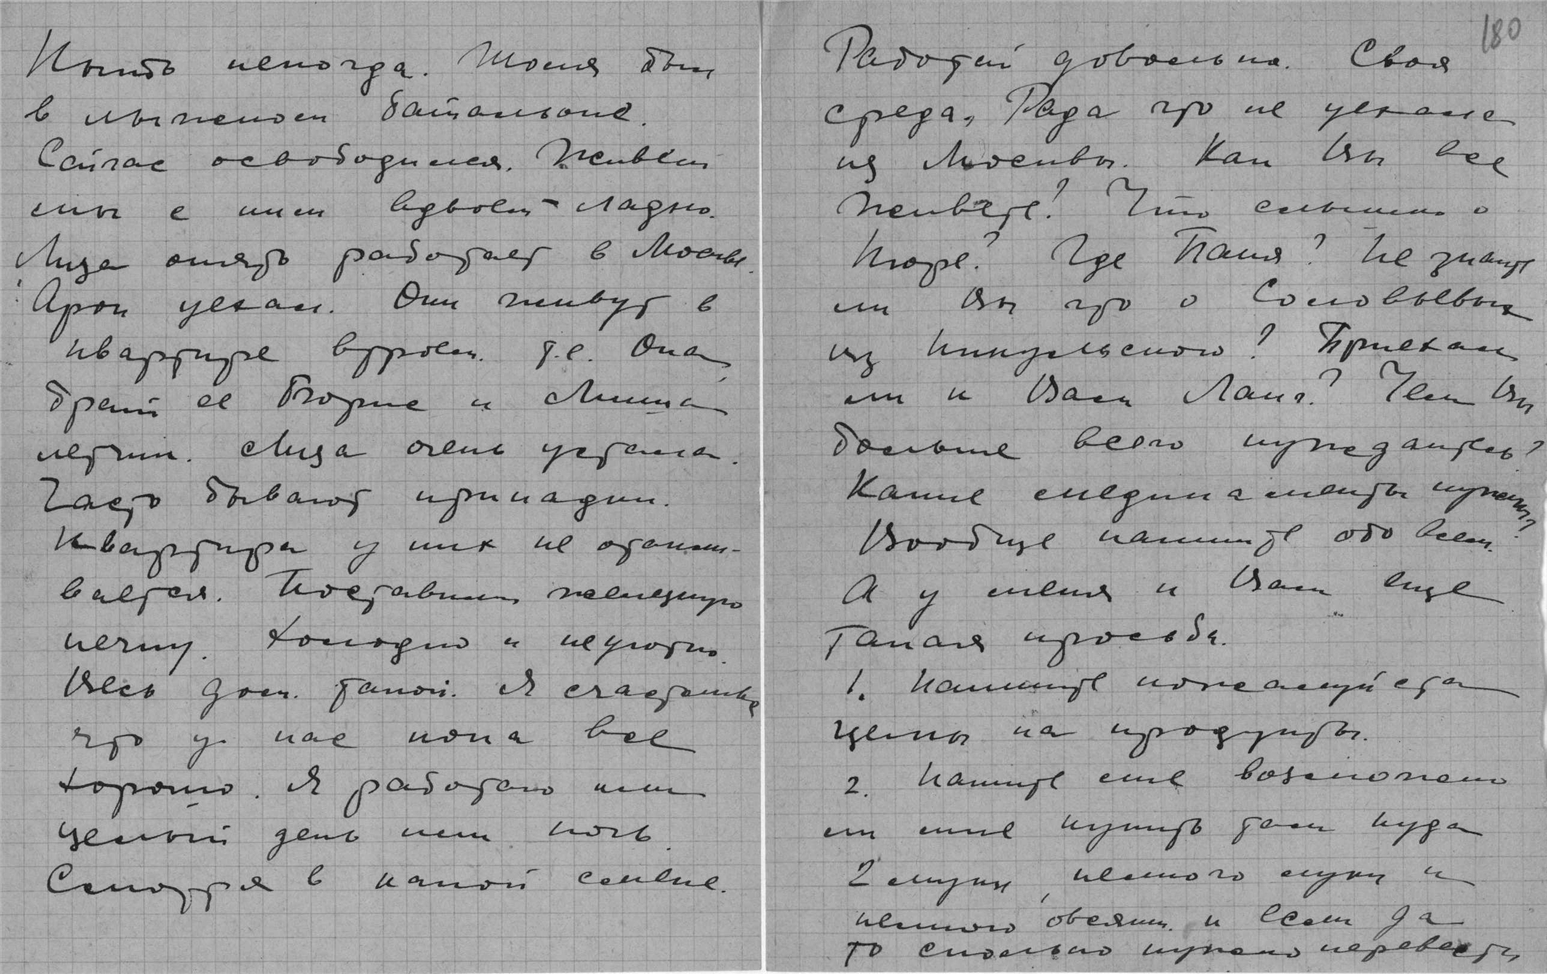 Ныть некогда. Шоля был
в лыжном батальоне.
Сейчас освободился. Живем
мы с ним вдвоем ладно.
Лиза опять работает в Москве.
Арон уехал. Они живут в
квартире втроем. т.е. Она,
брат ее Борис и Миша
летчик. Лиза очень устала.
Часто бывают припадки.
Квартира у них не отапли-
вается. Поставили железную
печку. Холодно и неуютно.
Весь дом такой. Я счастлива
что у нас пока все
хорошо. Я работаю или
целый день или ночь.
Смотря в какой смене.
180
Работой довольна. Своя
среда, Рада что не уехала
из Москвы. Как Вы все
живете? Что слышно о
Юре? Где Паня? Не знаете
ли Вы что о Соловьевых
из Никульского? Приехал
ли к Вам Ланг? Чем Вы
больше всего нуждаетесь?
Какие медикаменты нужны?
Вообще пишите обо всем.
А у меня к Вам еще
такая просьба.
1. Напишите пожалуйста
цены на продукты.
2. Пишите мне возможно
ли мне купить там пуда
2 муки, немного муки и
немного овсянки и если да
то сколько нужно перевести